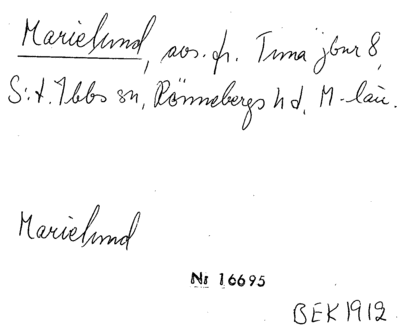 Marielund, avs. fr. Tuna jbnr 8,
S:t. Ibbs sn, Rönnebergs hd, M-län.
Marielund
Nr 16695
BEK 1912